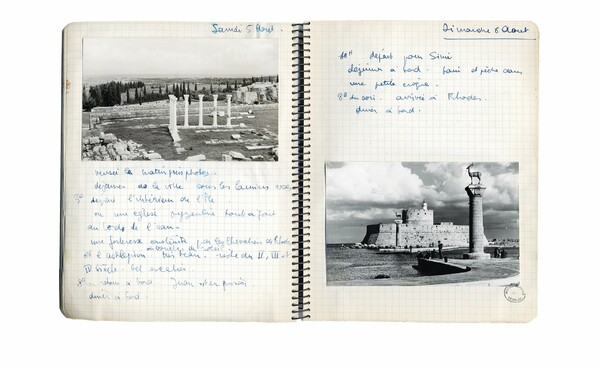 Samedi 5 Août.
versée le matin pris photos.
déjeuner de la ville sous les lauriers
3h départ l'intérieur de l'Île
ou une église byzantine tout à fait
au bords de l'eau.
une forteresse construite par les Chevaliers de Rhodes
et l'asklepion très beau. II, III et
IV Siècle. bel escalier.
8h retour à bord.
diner à bord.
Dimanche 6 Août
11H départ pour Simi
déjeuner à bord. bain et pêche dans
une petite crique.
8h du soir. arrivée à Rhodes.
diner à bord.